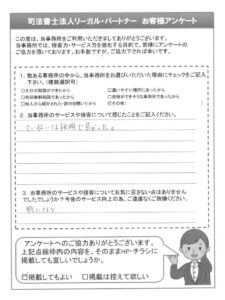 司法書士法人リーガル・パートナー お客様アンケート
この度は、当事務所をご利用いただきましてありがとうございます。
当事務所では、接客力・サービス力を強化する目的で、皆様にアンケートの
ご協力を頂いております。お手数ですが、ご協力下されば幸いです。
1. 数ある事務所の中から、当事務所をお選びいただいた理由にチェックをご記入
下さい。(複数選択可)
□土日の相談ができたから
□通いやすい場所にあったから
□初回無料相談であったから
□他人から紹介された・評判を聞いたから
□その他:
2. 当事務所のサービスや接客について感じたことをご記入ください。
ていねいな説明で良かった。
3. 当事務所のサービスや接客についてお気に召さない点はありません
でしたでしょうか?今後のサービス向上の為、ご遠慮なくご指摘ください。
特になし
アンケートへのご協力ありがとうございます。
上記点線枠内の内容を、そのままHP・チラシに
掲載しても宜しいでしょうか。
☑掲載してもよい □掲載は控えて欲しい